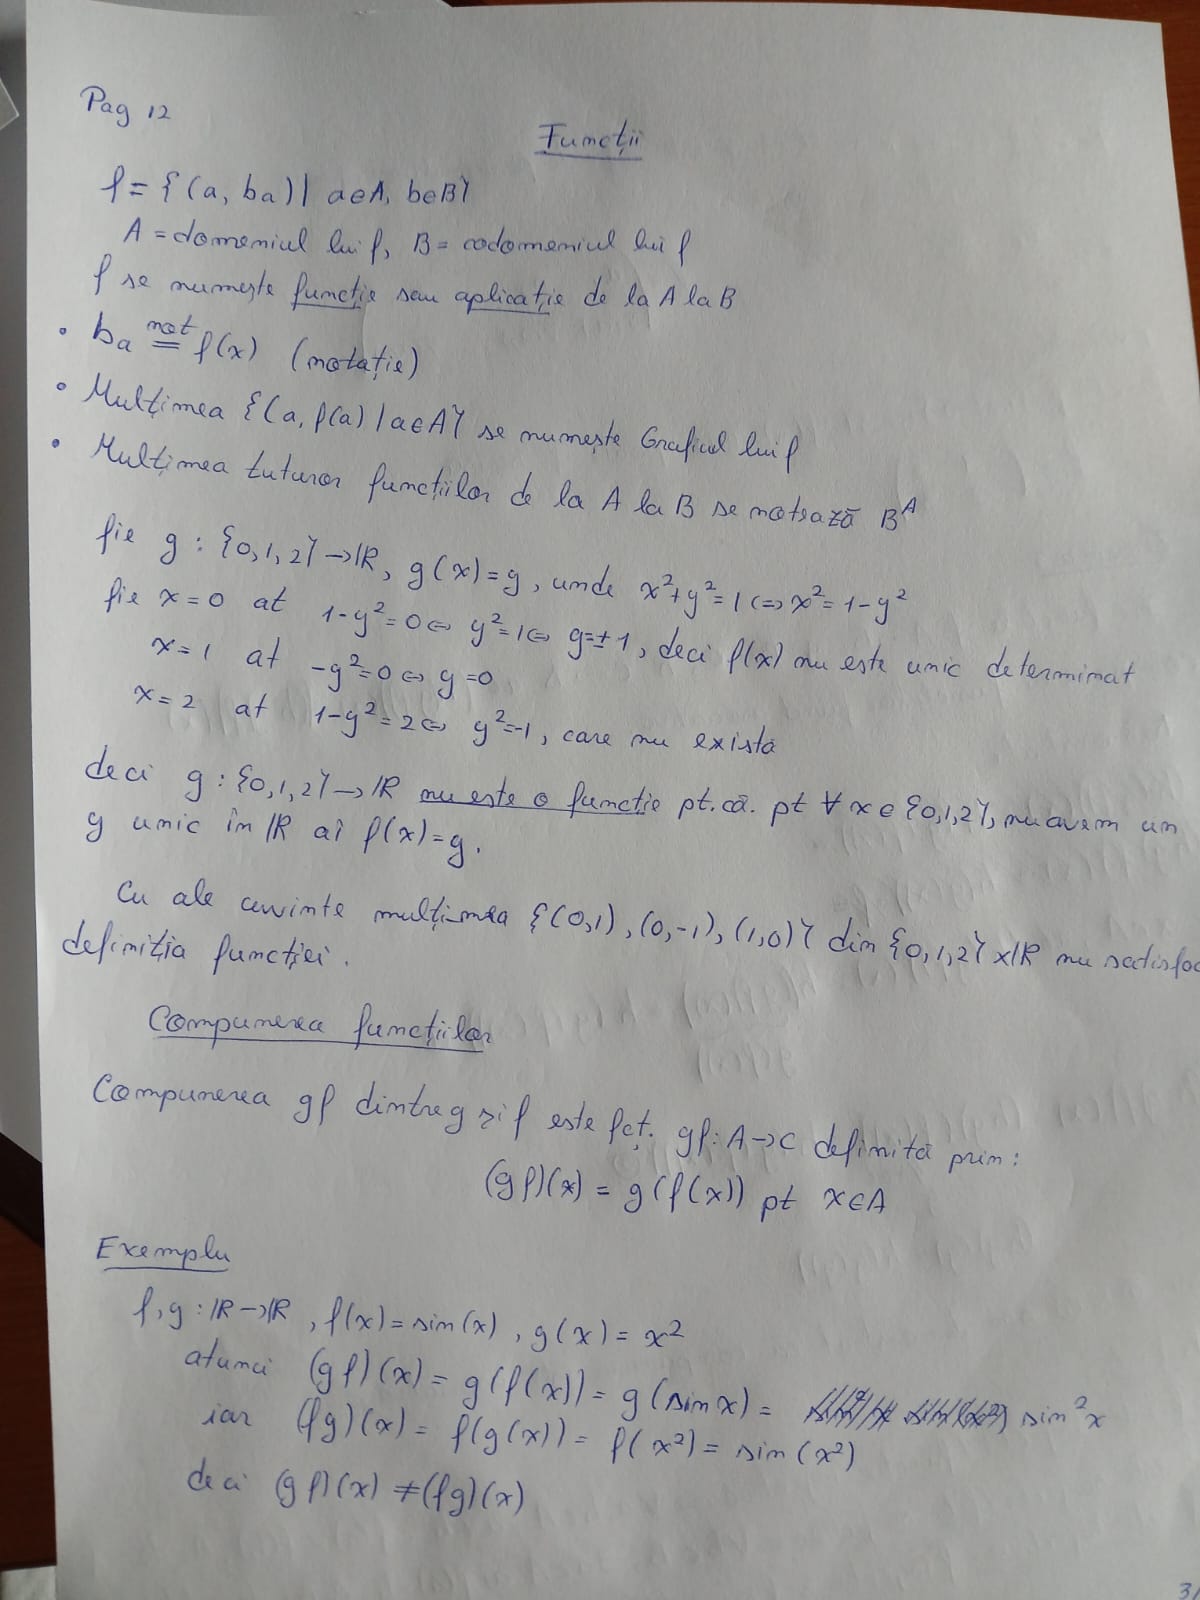 Pag 12
Funcții
f = {(a, ba) | a∈A, b∈B}
A = domeniul lui f, B = codomeniul lui f
f se numește funcție sau aplicație de la A la B
• bₐ not= f(x) (notație)
• Mulțimea {(a, f(a) | a∈A} se numește Graficul lui f
• Mulțimea tuturor funcțiilor de la A la B se notează Bᴬ
fie g : {0,1,2} → ℝ, g(x) = y, unde x²+y²=1 <=> x² = 1-y²
fie x=0 at 1-y²=0 <=> y²=1 <=> y=±1, deci f(x) nu este unic determinat
x=1 at -y²=0 <=> y=0
x=2 at 1-y²=2 <=> y²=-1, care nu există
deci g : {0,1,2} → ℝ nu este o funcție pt. că. pt ∀ x∈{0,1,2}, nu avem un
y unic în ℝ aî f(x)=y.
Cu ale cuvinte mulțimea {(0,1), (0,-1), (1,0)} din {0,1,2}xℝ nu satisfac
definiția funcției.
Compunerea funcțiilor
Compunerea gf dintre g și f este fcț. gf: A→C definită prin:
(gf)(x) = g(f(x)) pt x∈A
Exemplu
f,g : ℝ→ℝ, f(x) = sin(x), g(x) = x²
atunci (gf)(x) = g(f(x)) = g(sinx) = sin²x
iar (fg)(x) = f(g(x)) = f(x²) = sin(x²)
deci (gf)(x) ≠ (fg)(x)